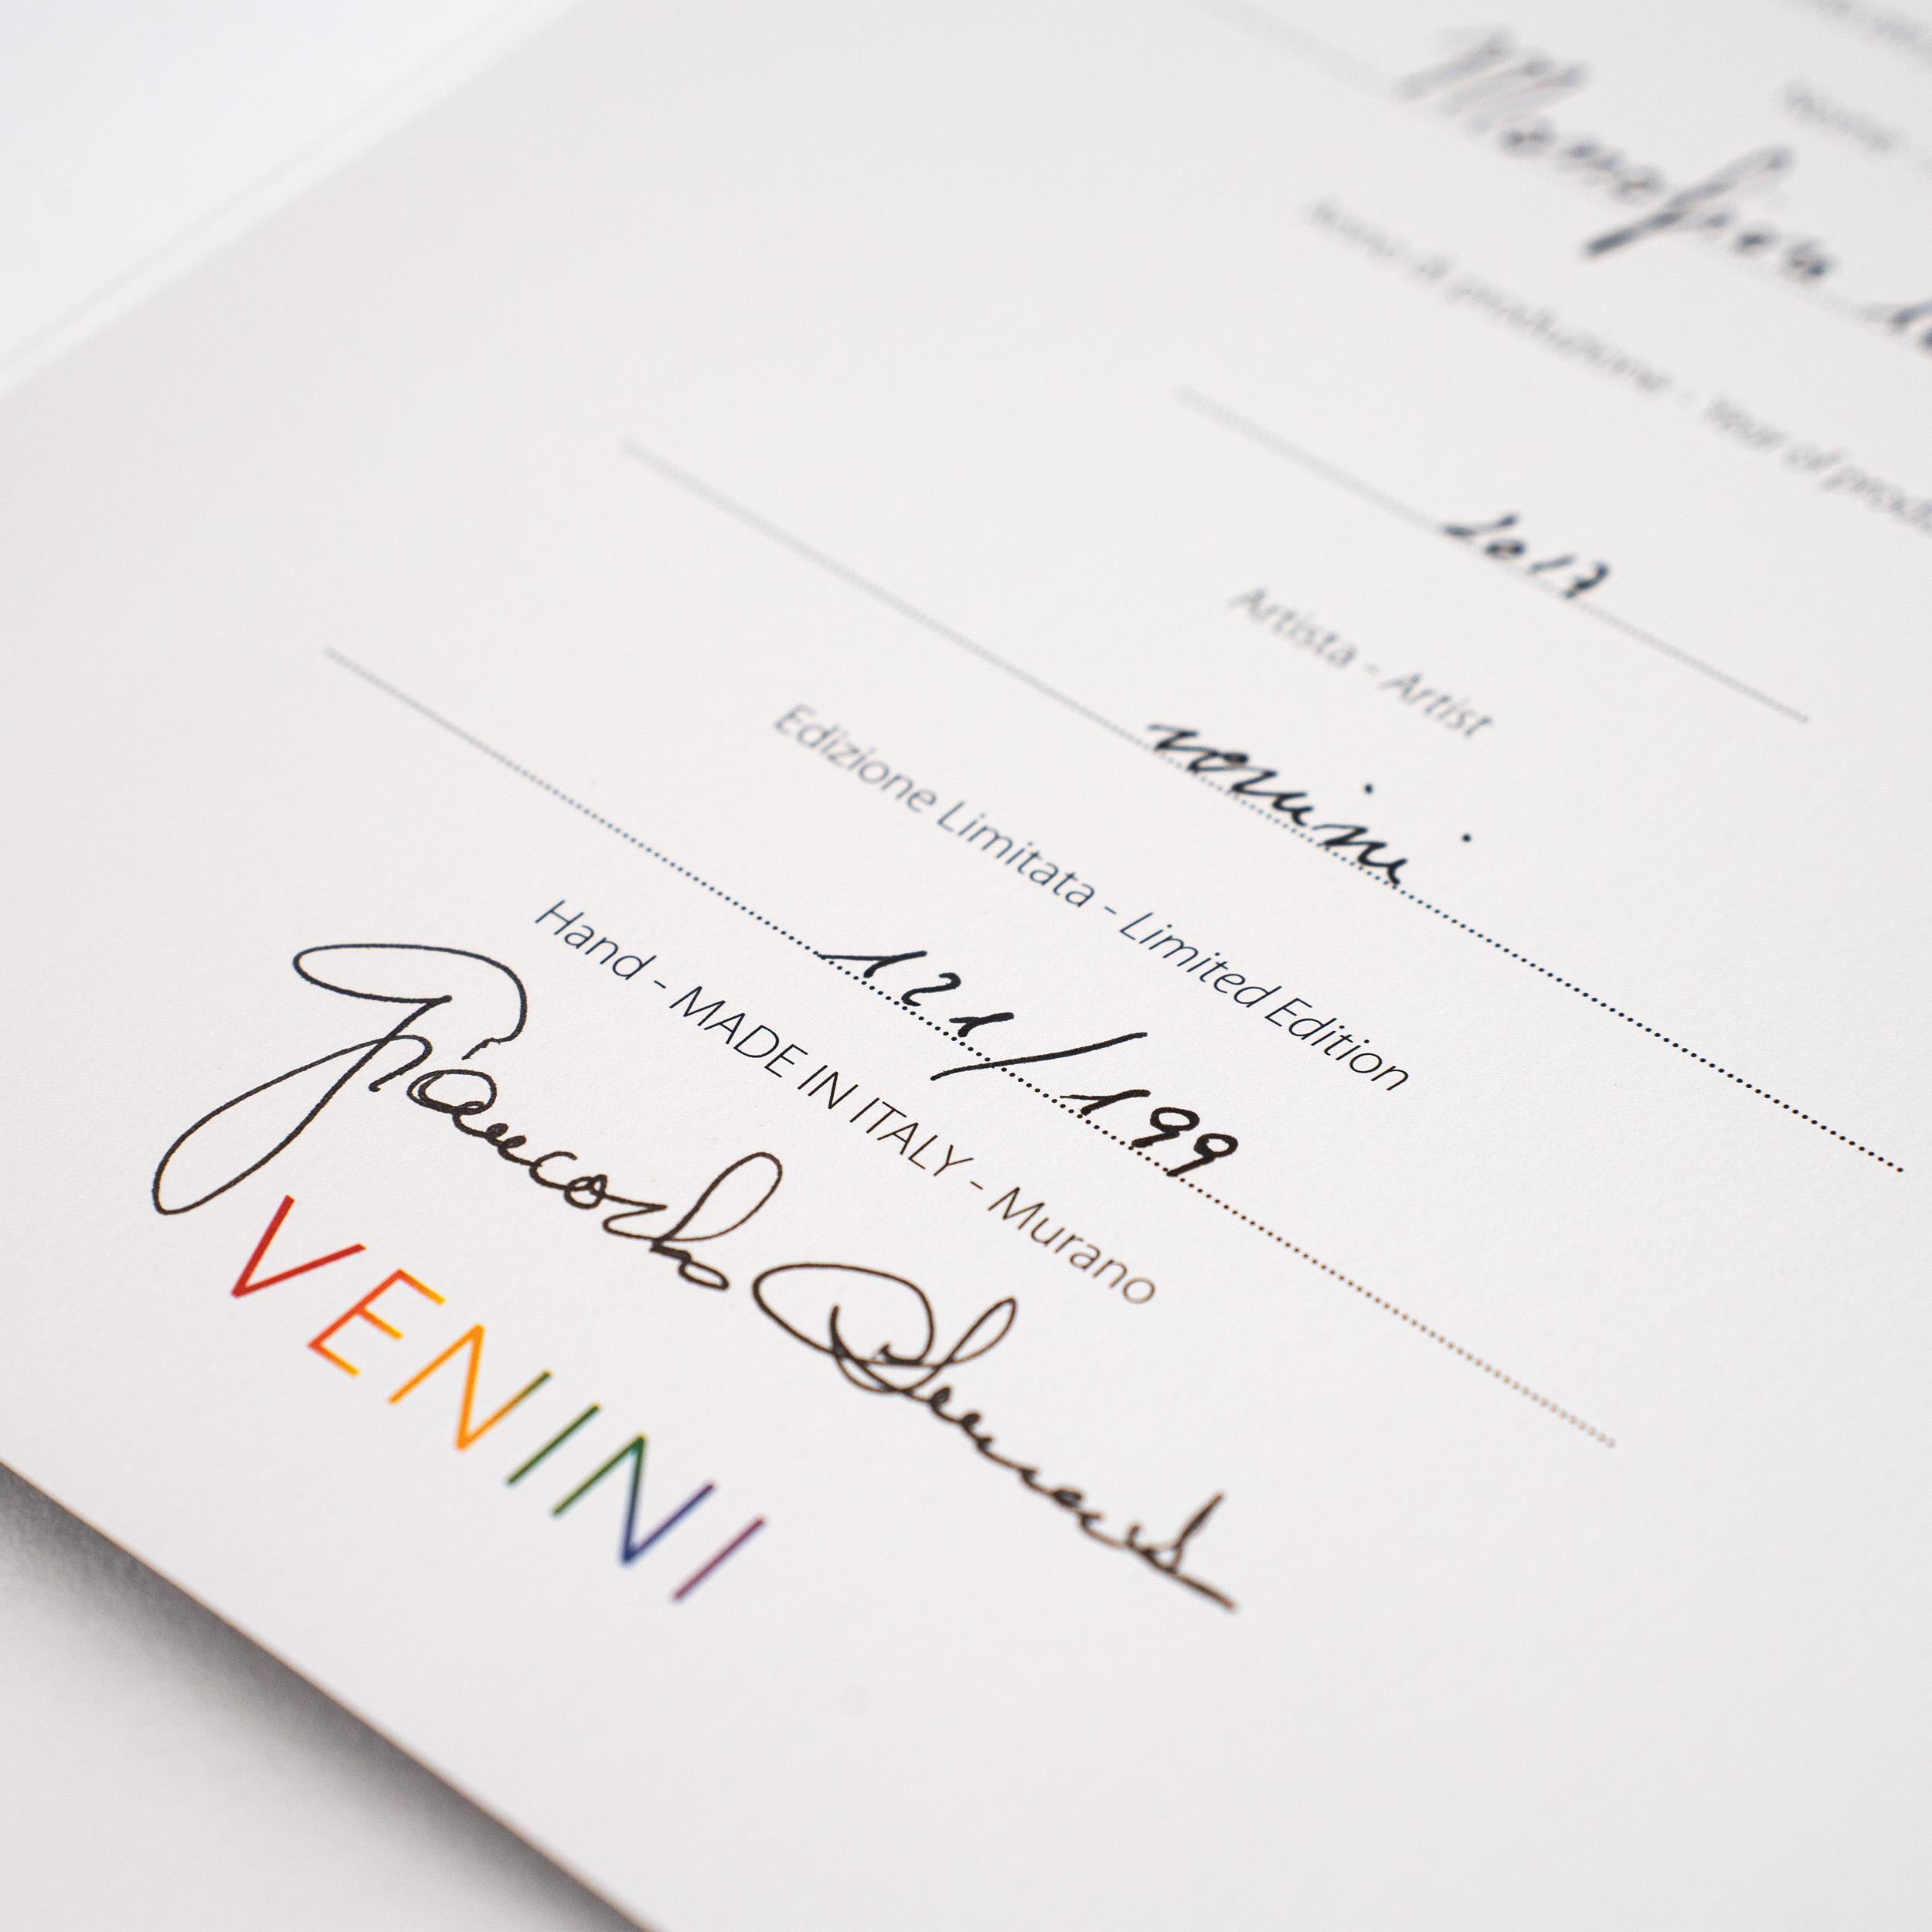 Anno di produzione - Year of
2017
Artista - Artist
venini
Edizione Limitata - Limited Edition
121/199
Hand - MADE IN ITALY - Murano
VENINI